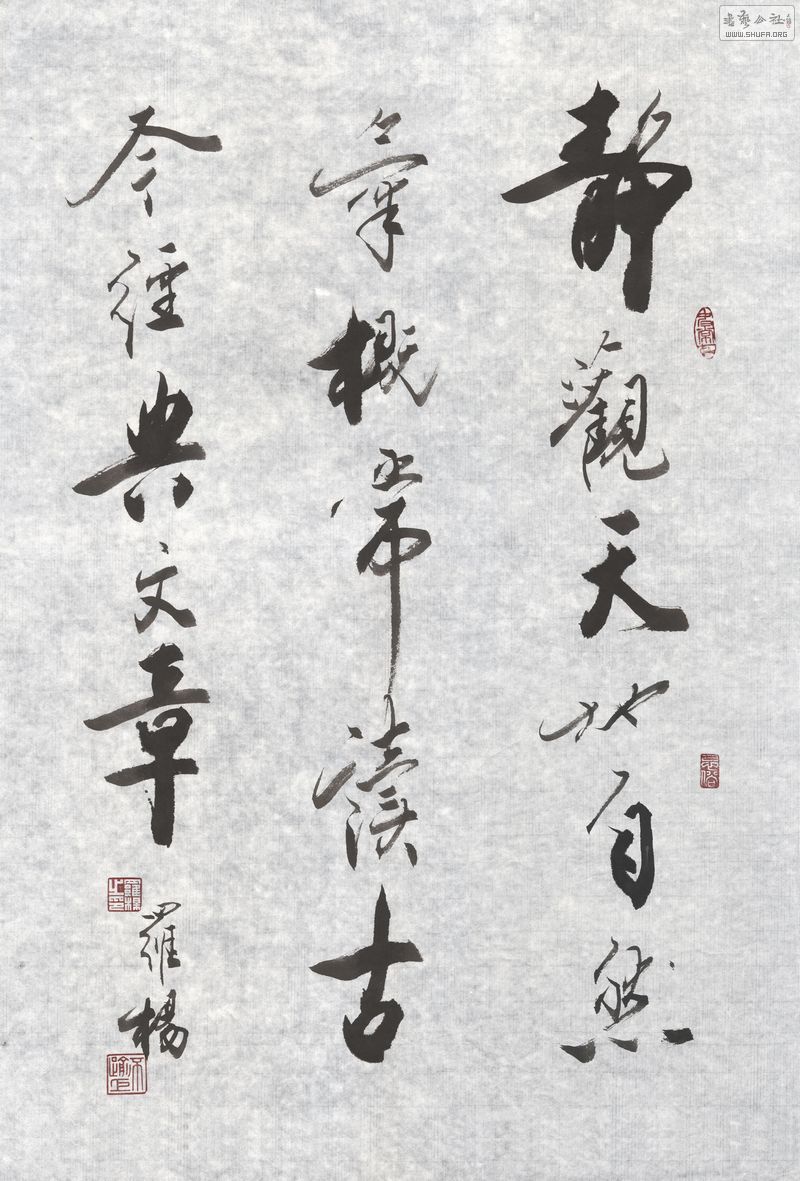 靜觀天地自然
氣概常讀古
今經典文章
羅楊
書艺公社
WWW.SHUFA.ORG